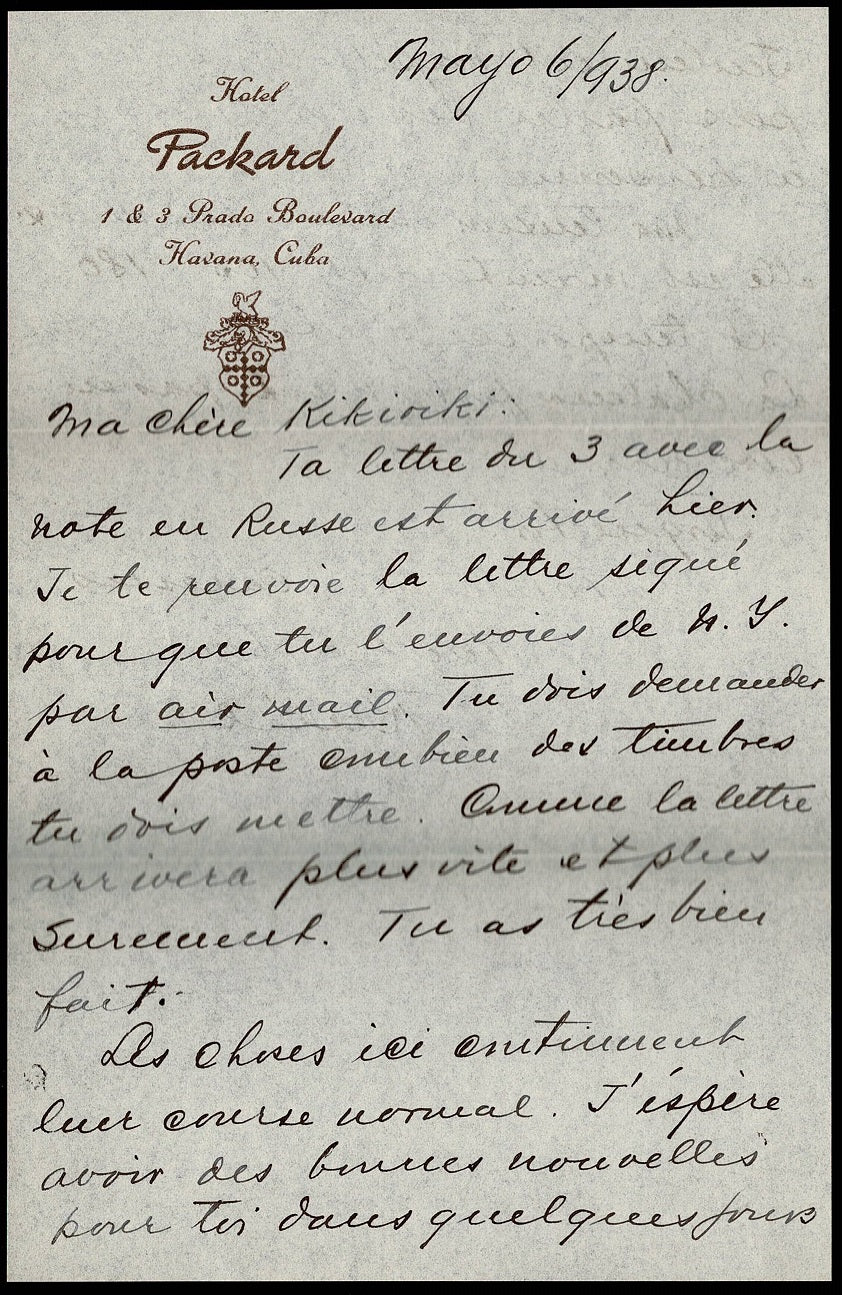 Mayo 6/938.
Hotel
Packard
1 & 3 Prado Boulevard
Havana, Cuba
Ma chère Kikiriki:
Ta lettre du 3 avec la
note en Russe est arrivé hier.
Je te renvoie la lettre signé
pour que tu l'envoies de N. Y.
par air mail. Tu dois demander
à la poste combien des timbres
tu dois mettre. Comme la lettre
arrivera plus vite et plus
surement. Tu as très bien
fait.
Les choses ici continuent
leur course normal. J'éspère
avoir des bonnes nouvelles
pour toi dans quelques jours